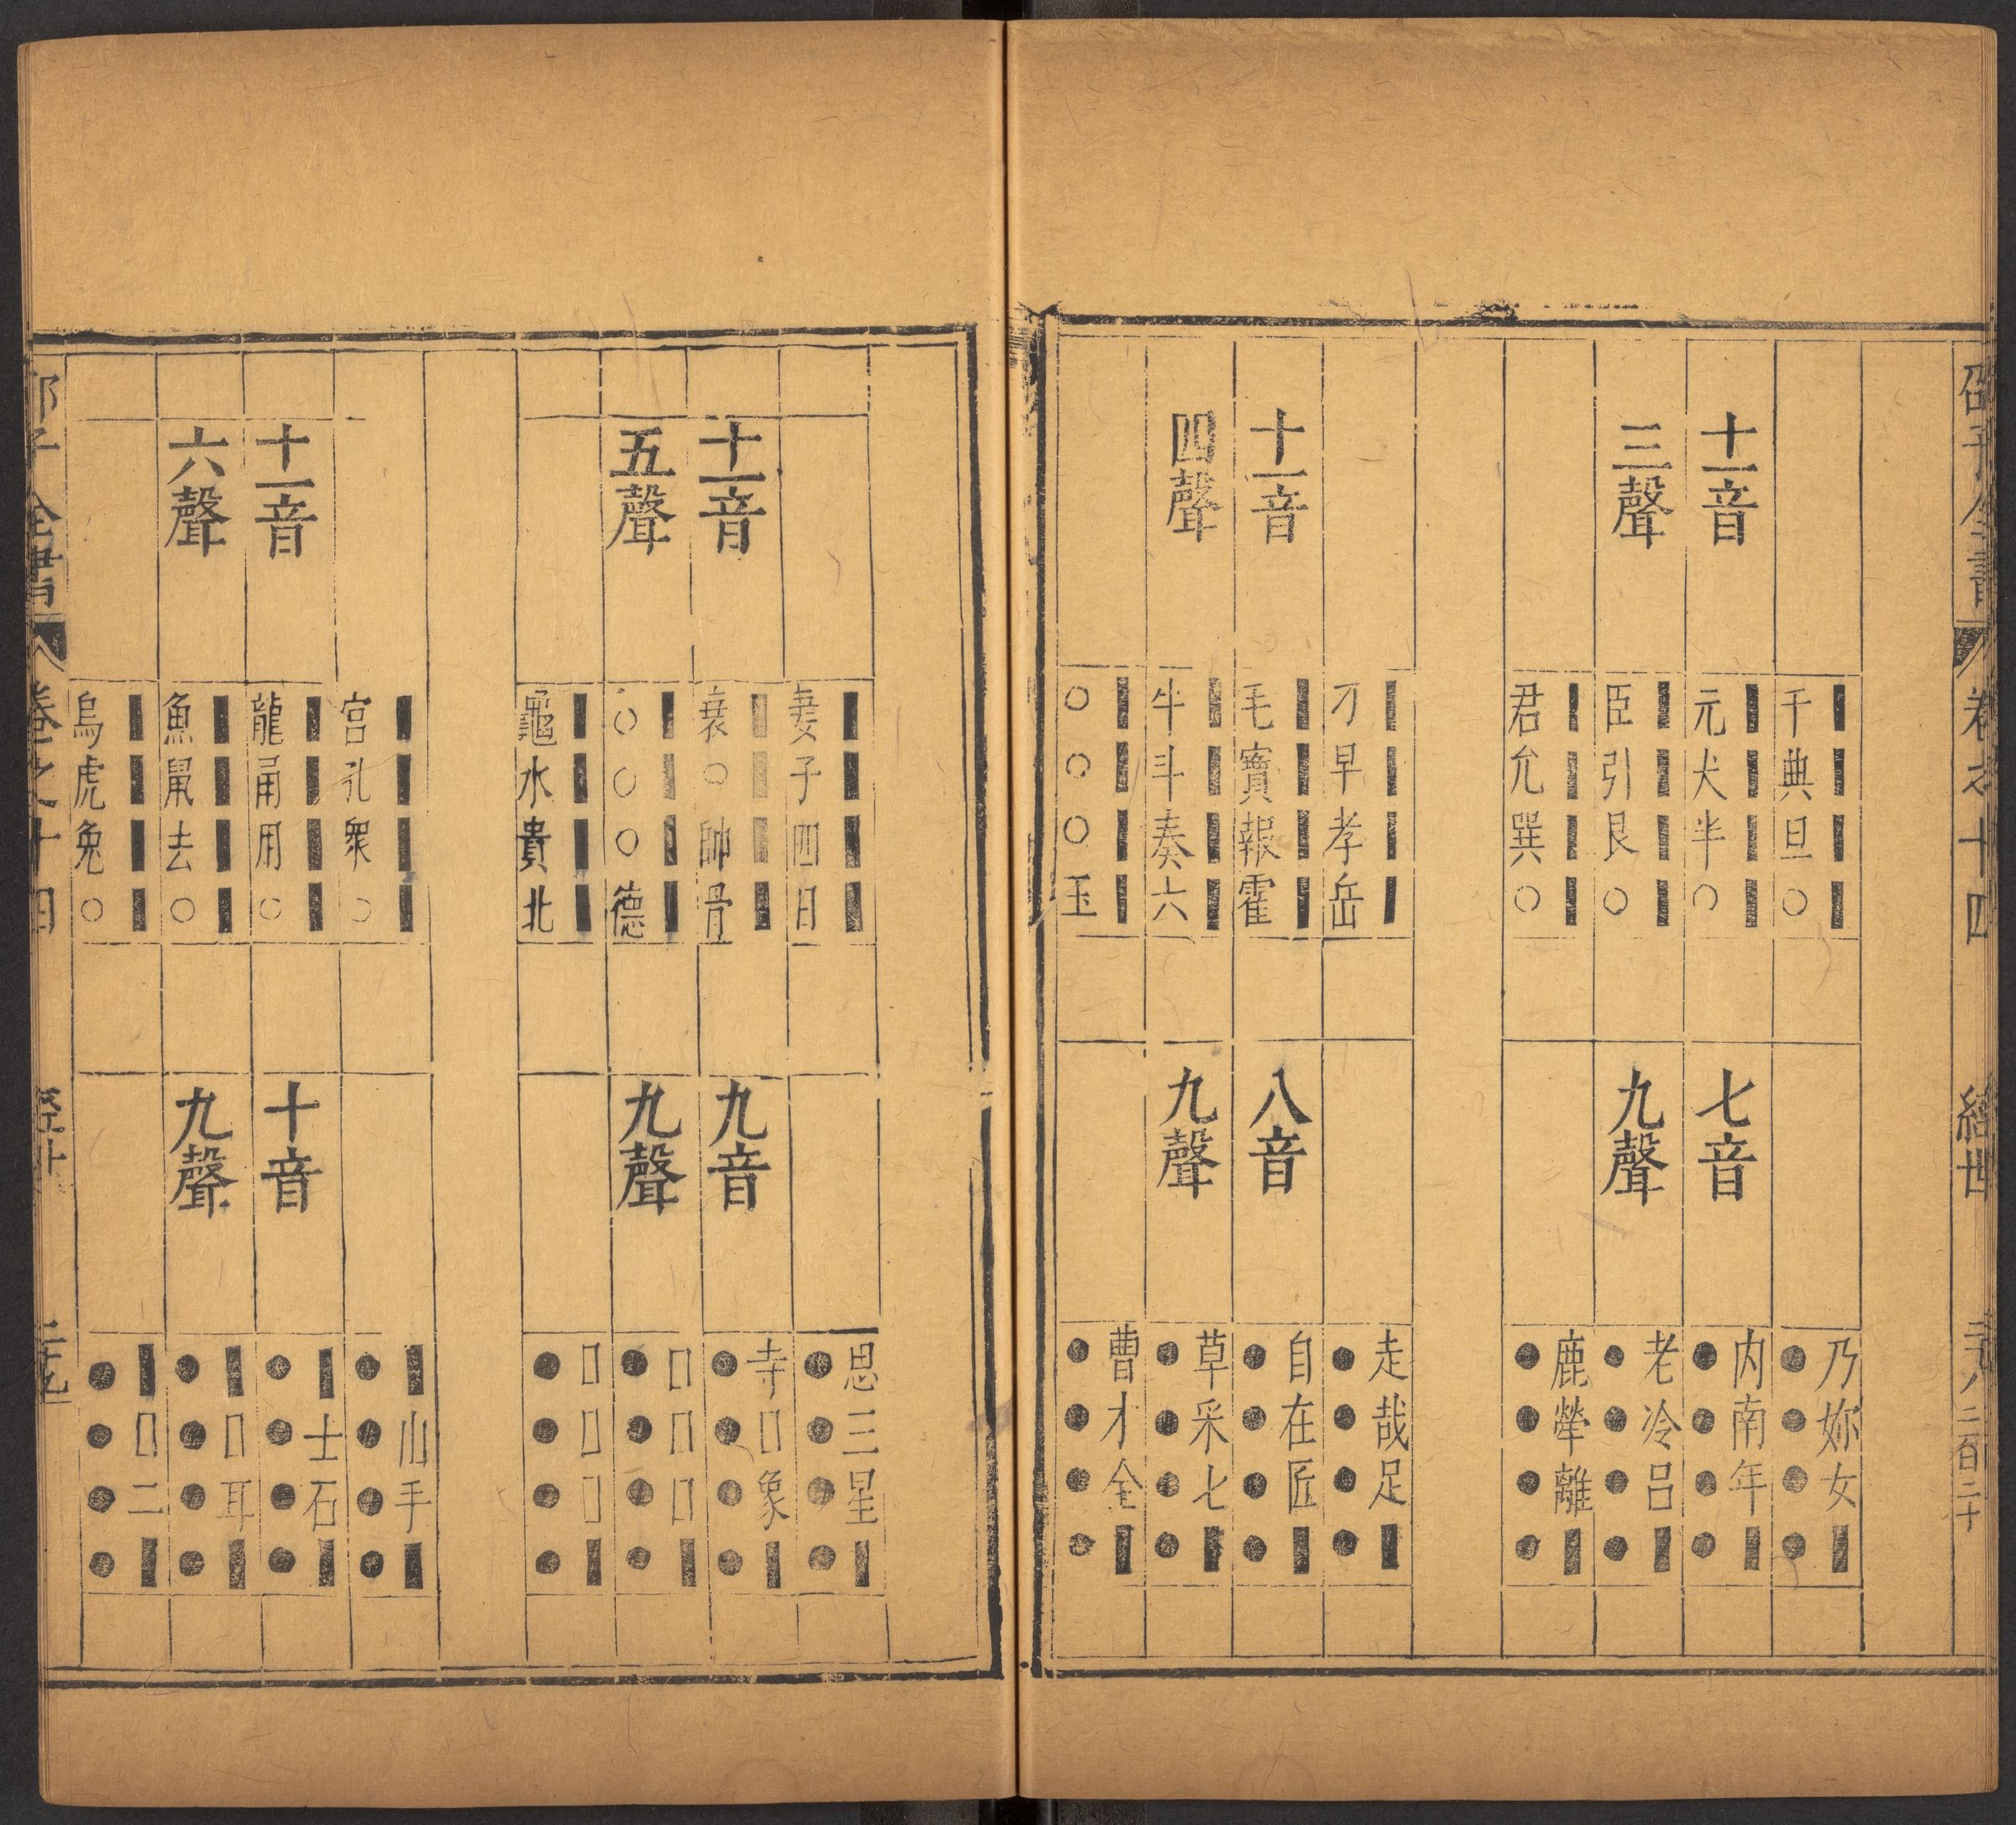 邵子全書 卷之十四 經世 二十八 二百二十
十一音
三聲
▌▌▌▌
千典旦○
▌▌▌▌
元犬半○
▌▌▌▌
臣引艮○
▌▌▌▌
君允巽○
七音
九聲
乃妳女▌
●●●●
內南年▌
●●●●
老冷呂▌
●●●●
鹿犖離▌
●●●●
十一音
四聲
▌▌▌▌
刀早孝岳
▌▌▌▌
毛寶報霍
▌▌▌▌
牛斗奏六
▌▌▌▌
○○○玉
八音
九聲
走哉足▌
●●●●
自在匠▌
●●●●
草采七▌
●●●●
曹才全▌
●●●●
十一音
五聲
▌▌▌▌
妻子四日
▌▌▌▌
衰○帥骨
▌▌▌▌
○○○德
▌▌▌▌
龜水貴北
九音
九聲
思三星▌
●●●●
寺□象▌
●●●●
□□□▌
●●●●
□□□▌
●●●●
十一音
六聲
▌▌▌▌
宮孔衆○
▌▌▌▌
龍甬用○
▌▌▌▌
魚鼠去○
▌▌▌▌
烏虎兔○
十音
九聲
▌山手▌
●●●●
▌士石▌
●●●●
▌□耳▌
●●●●
▌□二▌
●●●●
子全書 卷之十四